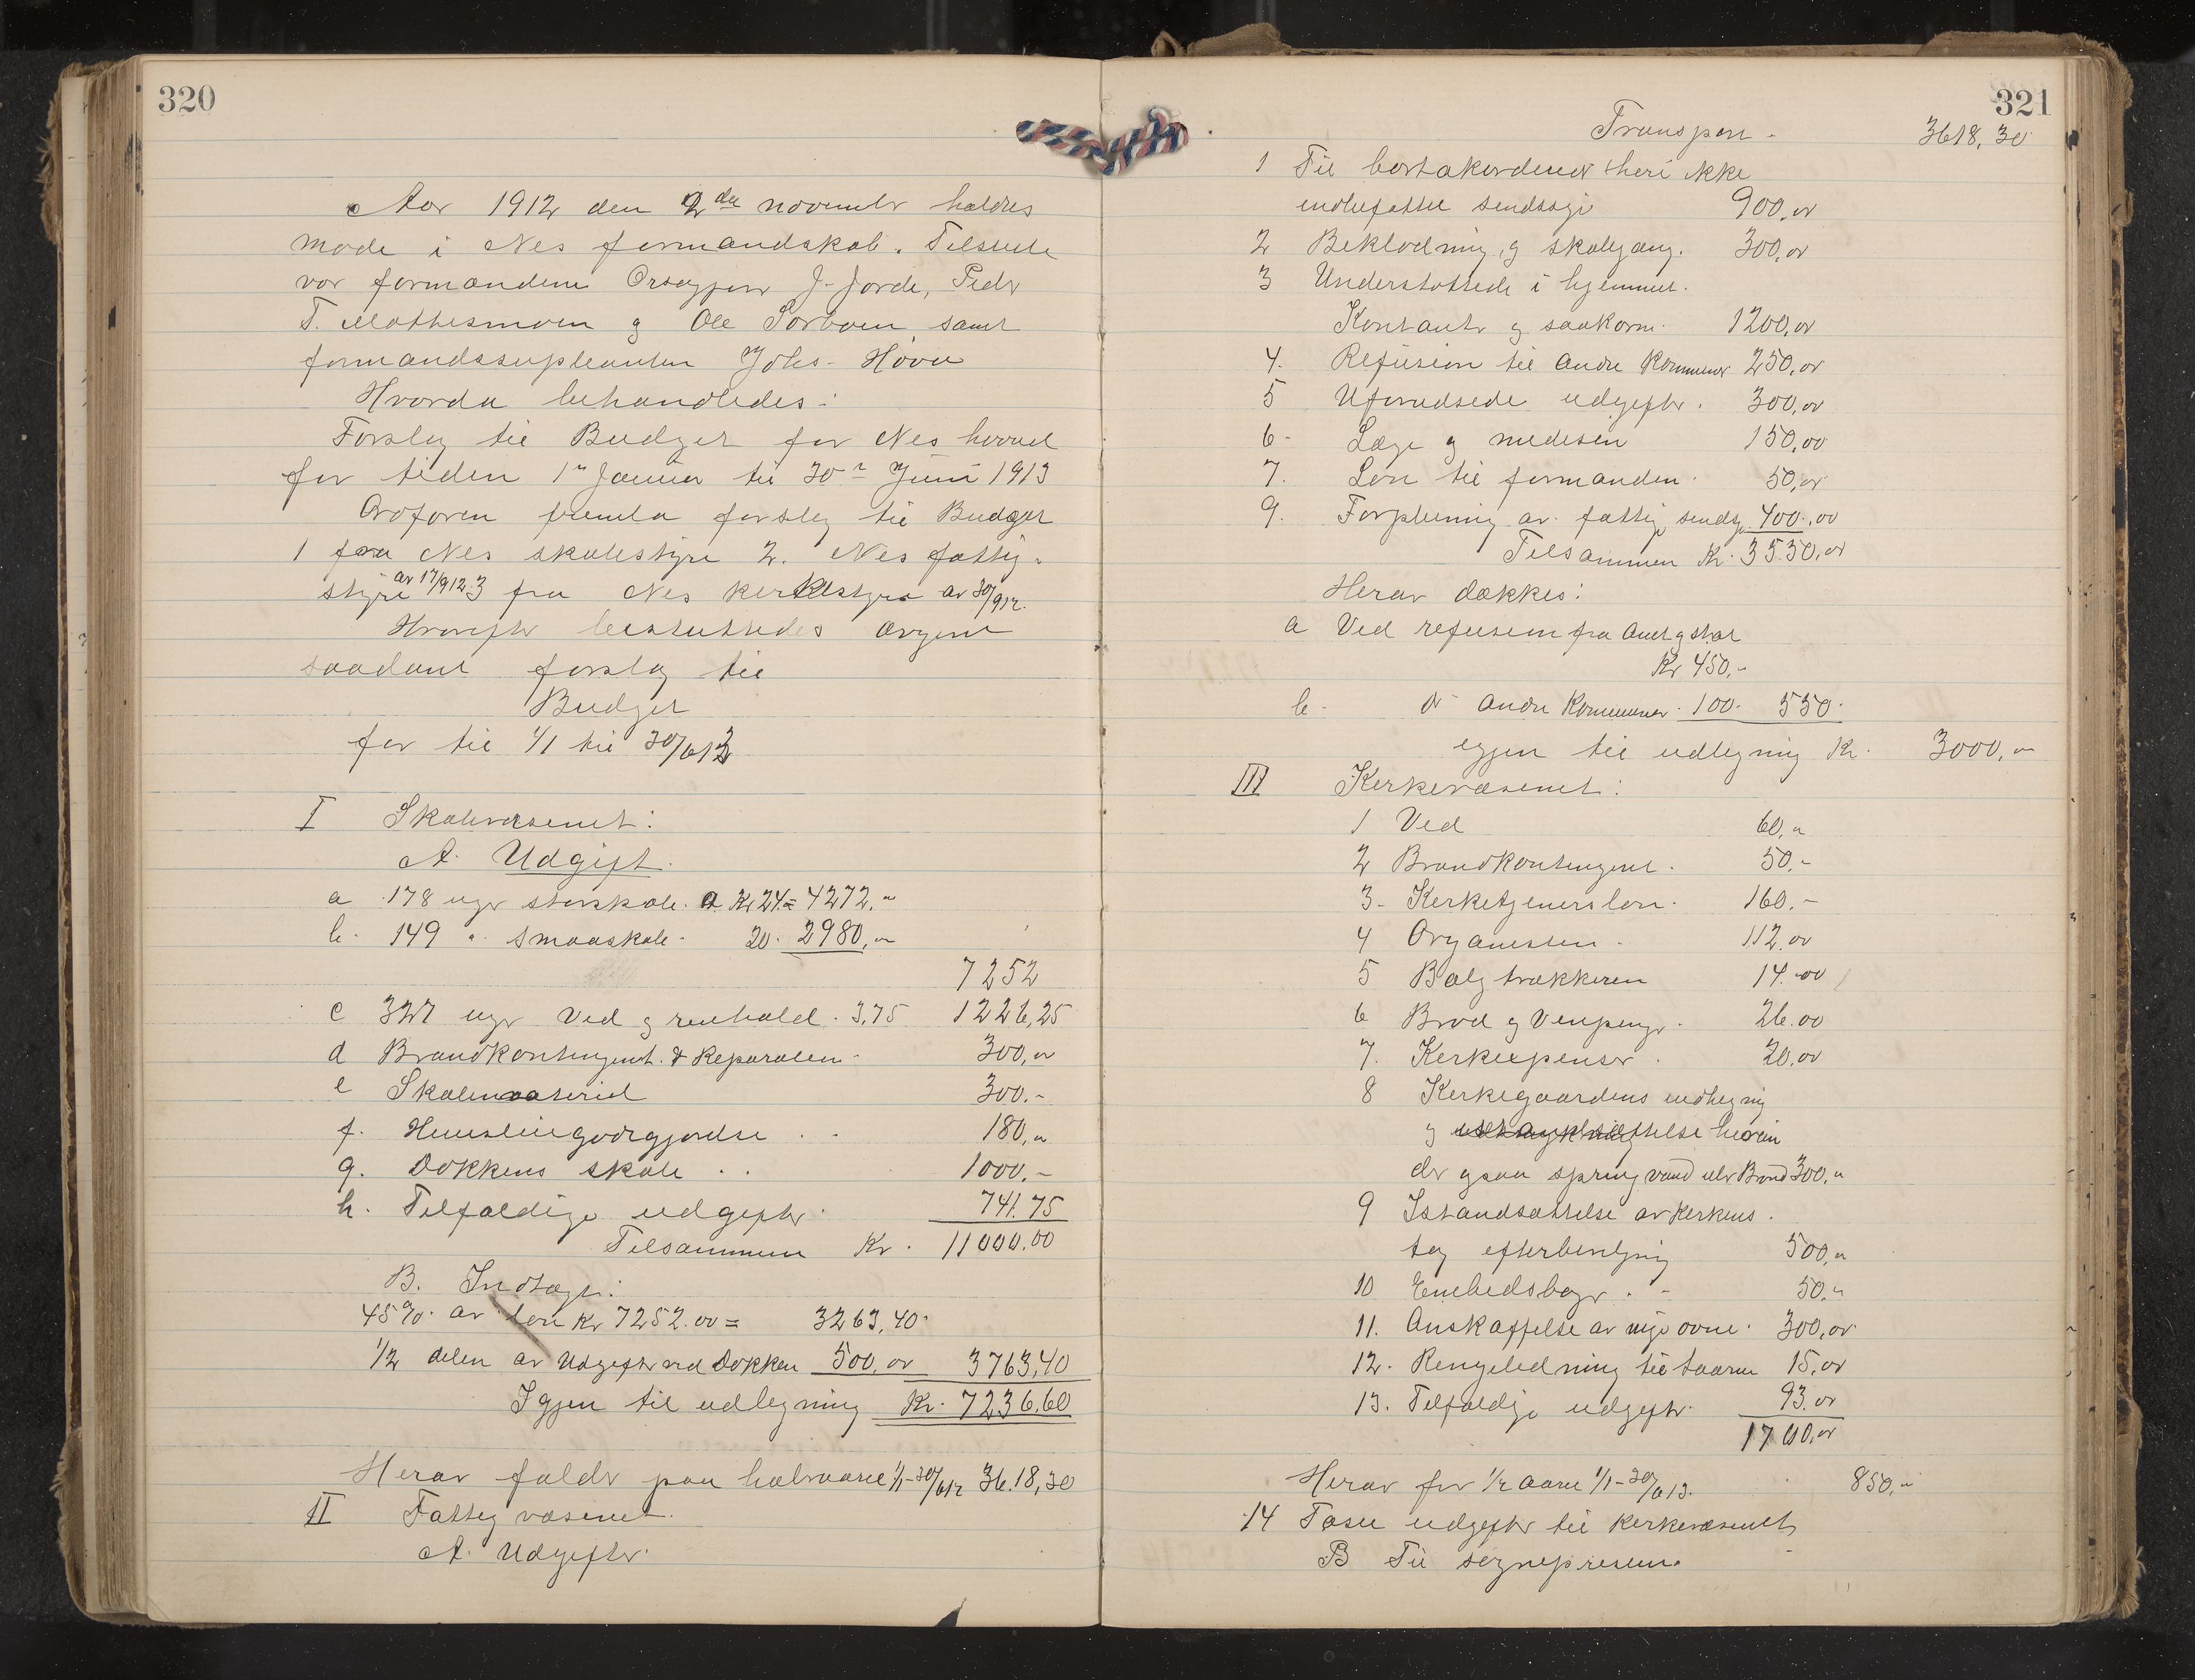 320
Aar 1912 den 2den november holdtes
møde i Nes formandskab. Tilstede
var formændene Ordfører J. Jorde, Peder
T. Mathismoen og Ole Sørbøen samt
formandssupleanten Johs. Hovn
Hvorda behandledes:
Forslag til Budget for Nes herred
for tiden 1ste Januar til 30te Juni 1913
Ordføren fremla forslag til Budget
1 fra Nes skolestyre 2. Nes fattig-
styre av 17/912. 3 fra Nes kerkestyre av 30/912.
Hvorefter besluttedes avgivet
saadant forslag til
Budget
for til 1/1 til 30/613
I Skolevæsenet:
A. Udgift.
a 178 uger storskole a Kr 24.= 4272.-
b. 149 " smaaskole 20. 2980,-
7252
c 327 uger Ved og renhold. 3,75 1226,25
d Brandkontingent & Reparation 300,00
e Skolemateriel 300.-
f. Huuslæigodtgjørelse 180,-
g. Dokkens skole 1000.-
h. Tilfældige udgifter 741.75
Tilsammen Kr. 11000.00
B. Indtægt:
45% av løn Kr 7252.00 = 3263,40
1/2 delen av Udgifter ved Dokken 500,00 3763,40
Igjen til udlegning Kr. 7236,60
Herav falder paa halvaaret 1/1-30/612 36.18,30
II Fattigvæsenet.
A. Udgifter
321
Transport 3618,30
1 Til bortakorderede heri ikke
indbefattet sindssyge 900,00
2 Beklædning og skolegang. 300,00
3 Understøttede i hjemmet.
Kontanter og saakorn. 1200,00
4. Refusion til andre Kommuner 250,00
5 Uforudsede udgifter. 300,00
6 Læge og medisin 150,00
7. Løn til formanden 50,00
9. Forpleining av fattige sindsg. 400,00
Tilsammen Kr. 3550,00
Herav dækkes:
a Ved refusion fra Amt og stat
Kr 450,-
b. do andre Kommuner 100. 550.
igjen til udlegning Kr. 3000,00
III Kerkevæsenet:
1 Ved 60,-
2 Brandkontingent. 50.-
3. Kerketjenerens løn. 160.-
4 Organisten 112.00
5 Bælgtrækkeren 14.00
6 Brød og Vinpenge. 26.00
7. Kerkeexpenser. 20,00
8 Kerkegaardens indhegning
og
der ogsaa springvand eller Brønd 300,-
9 Istandsættelse av Kerkens
tag efterbevilgning 500,-
10 Embedsbøger. 50,-
11. Anskaffelse av nye ovne. 300,00
12. Ringeledning til taarn 15,00
13. Tilfældige udgifter. 93.00
1700,00
Herav for 1/2 aaret 1/1-30/613. 850,-
14 Faste udgifter til kerkevæsenet
B Til sognepresten.